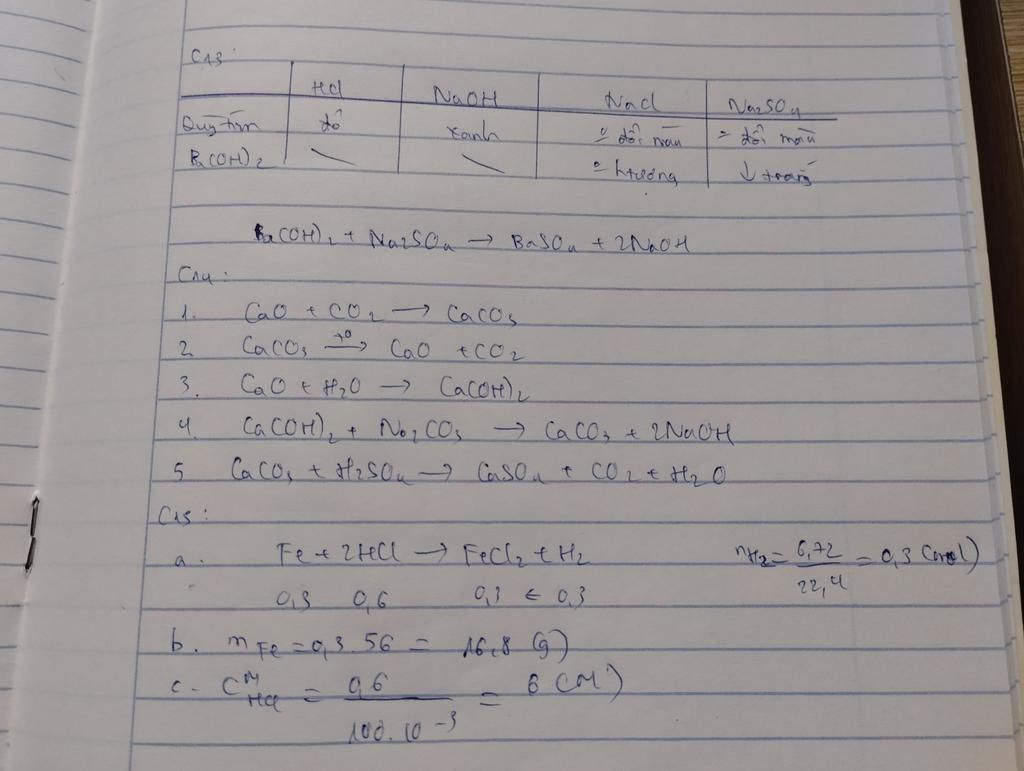 C13:
HCl NaOH NaCl Na2SO4
Quỳ tím đỏ xanh 0 đổi màu 0 đổi màu
Ba(OH)2 0 htượng ↓ trắng
Ba(OH)2 + Na2SO4 → BaSO4 + 2NaOH
C14:
1. CaO + CO2 → CaCO3
2 CaCO3 →t0 CaO + CO2
3. CaO + H2O → Ca(OH)2
4. Ca(OH)2 + Na2CO3 → CaCO3 + 2NaOH
5 CaCO3 + H2SO4 → CaSO4 + CO2 + H2O
C15:
a. Fe + 2HCl → FeCl2 + H2 nH2 = 6,72/22,4 = 0,3 (mol)
0,3 0,6 0,3 ← 0,3
b. mFe = 0,3.56 = 16,8 (g)
c. CM HCl = 0,6/100.10-3 = 6 (M)